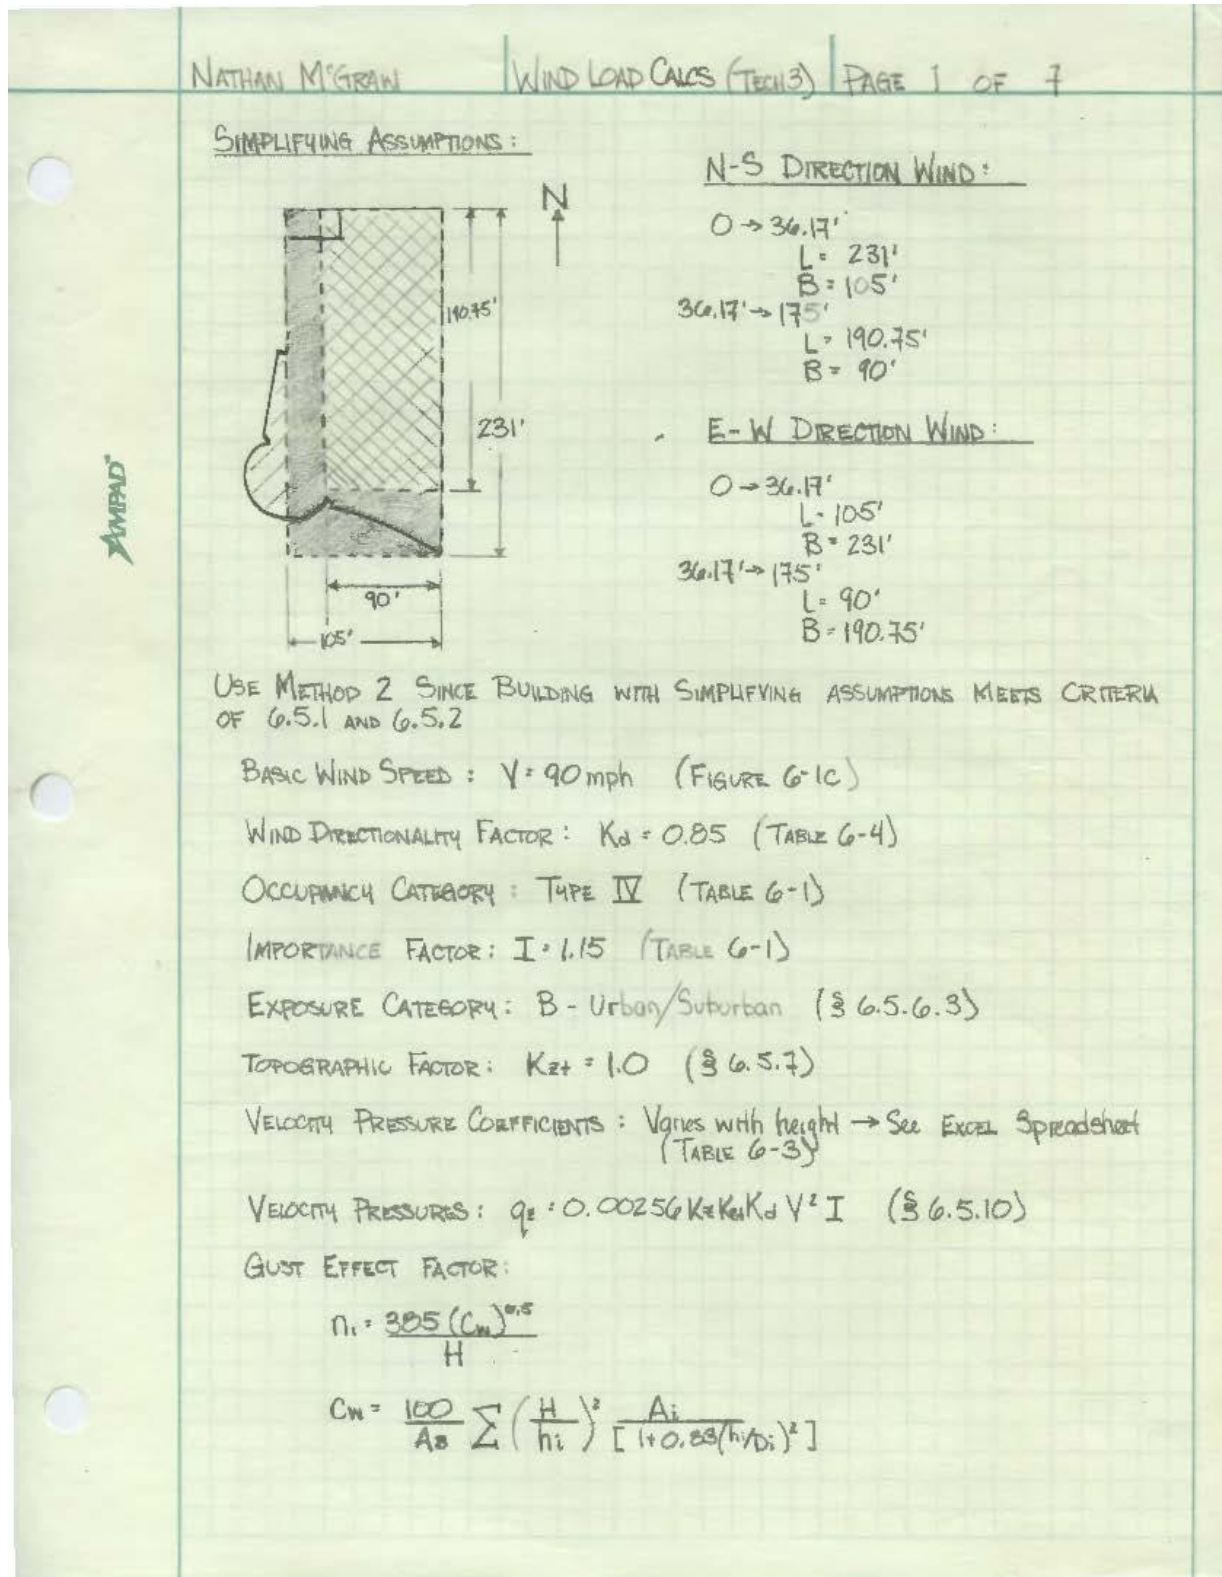 NATHAN McGRAW WIND LOAD CALCS (TECH 3) PAGE 1 OF 7
SIMPLIFYING ASSUMPTIONS:
N
190.75'
231'
90'
105'
N-S DIRECTION WIND:
0 → 36.17'
L = 231'
B = 105'
36.17' → 175'
L = 190.75'
B = 90'
E-W DIRECTION WIND:
0 → 36.17'
L = 105'
B = 231'
36.17' → 175'
L = 90'
B = 190.75'
AMPAD
USE METHOD 2 SINCE BUILDING WITH SIMPLIFYING ASSUMPTIONS MEETS CRITERIA
OF 6.5.1 AND 6.5.2
BASIC WIND SPEED : V = 90 mph (FIGURE 6-1C)
WIND DIRECTIONALITY FACTOR : Kd = 0.85 (TABLE 6-4)
OCCUPANCY CATEGORY : TYPE IV (TABLE 6-1)
IMPORTANCE FACTOR : I = 1.15 (TABLE 6-1)
EXPOSURE CATEGORY : B - Urban/Suburban (§ 6.5.6.3)
TOPOGRAPHIC FACTOR : Kzt = 1.0 (§ 6.5.7)
VELOCITY PRESSURE COEFFICIENTS : Varies with height → See EXCEL Spreadsheet
(TABLE 6-3)
VELOCITY PRESSURES : qz = 0.00256 Kz Kzt Kd V² I (§ 6.5.10)
GUST EFFECT FACTOR:
n₁ = 385 (Cw)^0.5 / H
Cw = 100/AB Σ (H/hi)² Ai / [1+0.83(hi/Di)²]